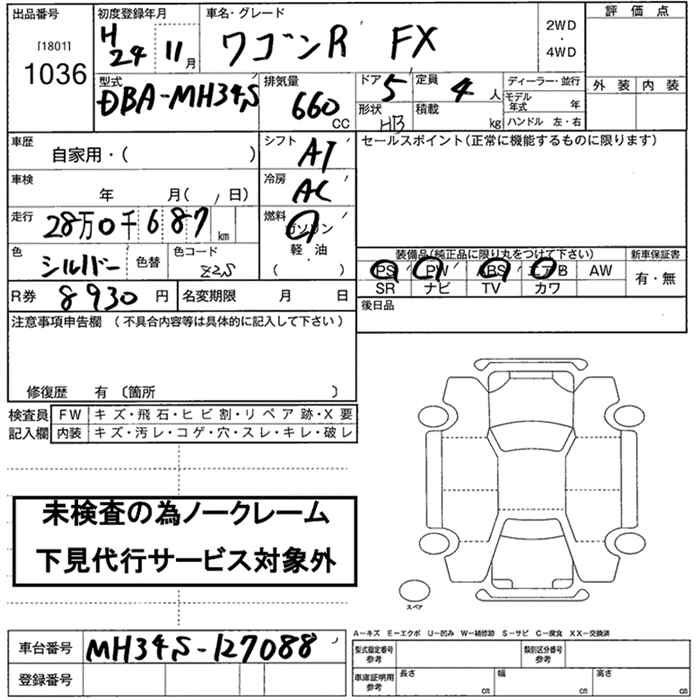 出品番号 初度登録年月 車名・グレード 評価点
[1801] H24 11月 ワゴンR FX 2WD・4WD
1036
型式 排気量 ドア 5 定員 4人 ディーラー・並行 外装 内装
DBA-MH34S 660 CC 形状 HB 積載 kg モデル年式 年
ハンドル 左・右
車歴 自家用・( ) シフト AT セールスポイント(正常に機能するものに限ります)
車検 年 月( / 日) 冷房 AC
走行 28万0千687km 燃料 ガソリン
軽・油
( )
色 シルバー 色替 色コード Z2S 装備品(純正品に限り丸をつけて下さい) 新車保証書
PS PW ABS エアB AW 有・無
SR ナビ TV カワ
R券 8930円 名変期限 月 日 後日品
注意事項申告欄(不具合内容等は具体的に記入して下さい)
修復歴 有〔箇所 〕
検査員 FW キズ・飛石・ヒビ割・リペア跡・X要
記入欄 内装 キズ・汚レ・コゲ・穴・スレ・キレ・破レ
未検査の為ノークレーム
下見代行サービス対象外
スペア
A-キズ E-エクボ U-凹み W-補修跡 S-サビ C-腐食 XX-交換済
車台番号 MH34S-127088 型式指定番号 参考 類別区分番号 参考
登録番号 車庫証明用 参考 長さ cm 幅 cm 高さ cm